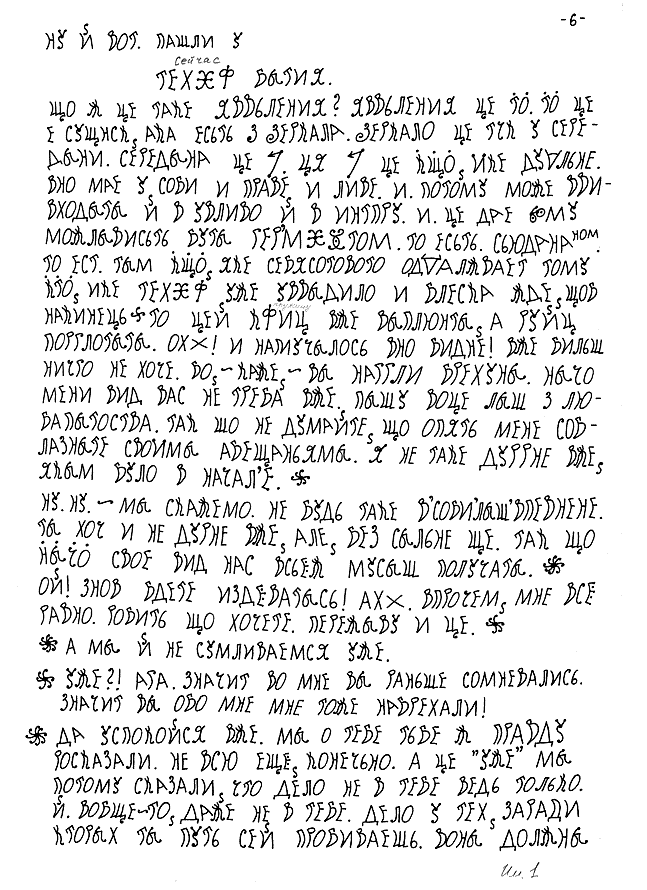 -6-
НУ Й ВОТ. ПАШЛИ У
сейчас
ВЫТИЯ.
ЩО Ж ЦЕ ТАКЕ ЯВВЬЛЕНИЯ? ЯВВЬЛЕНИЯ ЦЕ ТО. ТО ЦЕ
Е СУЩНСК, АКА ЕСТЬ З ЗЕРКАЛА. ЗЕРКАЛО ЦЕ ТЧК У СЕРЕ-
ДЫНИ. СЕРЕДЫНА ЦЕ 7. ЦЯ 7 ЦЕ КЩО, ИКЕ ДУАЛЬНЕ.
ВНО МАЕ У СОБИ И ПРАВЕ, И ЛИВЕ. И. ПОТОМУ МОЖЕ ВВИ-
ВХОДЫТЫ Й В УВЛИВО Й В ИНТПРУ. И. ЦЕ ДАЕ ЕМУ
МОЖЛЫВИСЬТЬ БУТЫ ТО ЕСТЬ. СЬЮДЫНАНОМ.
ТО ЕСТ. ТЫМ КЩО, ЯКЕ СЕБЯСОТОВОТО ОДУАЛЖВАЕТ ТОМУ
КТО, ИКЕ УЖЕ УВВАДИЛО И ВЛЕСКА ЖДЕ, ЩОБ
НАКИНЕЦЬ ТО ЦЕЙ ВЖЕ ВЫПЛЮНТЫ, А ГУИЦ
ПОГГЛОТЫТЫ. ОХХ! И НАПУЧАЛОСЬ ВНО ВИДНЕ! ВЖЕ БИЛЬШ
НИЧТО НЕ ХОЧЕ. ВО, – КАЖЕ, – ВЫ НАГГЛИ БРЕХУНЫ. НЫЧО
МЕНИ ВИД ВАС НЕ ТРЕБА ВЖЕ. ПЫШУ ВОЩЕ ЛЫШ З ЛЮ-
БАПЫТОСТВА. ТАК ШО НЕ ДУМАЙТЕ, ЩО ОПЯТЬ МЕНЕ СОВ-
ЛАЗНЫТЕ СВОИМЫ АБЕЩАНЬЯМЫ. Я НЕ ТАКЕ ДУГГНЕ ВЖЕ,
ЯКЫМ БУЛО В НАЧАЛ'Е.
НУ. НУ. – МЫ СКАЖЕМО. НЕ БУДЬ ТАКЕ В'СОБИ'ЛЫШ'ВПЕВНЕНЕ.
ТЫ ХОЧ И НЕ ДУРНЕ ВЖЕ, АЛЕ, БЕЗ СЫЛЬНЕ ЩЕ. ТАК ЩО
НЫЧО СВОЕ ВИД НАС ВСЬЕЖ МУСЫШ ПОЛУЧАТЫ.
ОЙ! ЗНОВ ВДЕТЕ ИЗДЕВАТЫСЬ! АХХ. ВПРОЧЕМ, МНЕ ВСЕ
РАВНО. РОБИТЬ ЩО ХОЧЕТЕ. ПЕРЕЖЫВУ И ЦЕ.
А МЫ Й НЕ СУМЛИВАЕМСЯ УЖЕ.
УЖЕ?! АГА. ЗНАЧИТ ВО МНЕ ВЫ РАНЬШЕ СОМНЕВАЛИСЬ.
ЗНАЧИТ ВЫ ОБО МНЕ МНЕ ТОЖЕ НАБРЕХАЛИ!
ДА УСПОКОЙСЯ ВЖЕ. МЫ О ТЕБЕ ТЬБЕ Ж ПРАВДУ
РОСКАЗАЛИ. НЕ ВСЮ ЕЩЕ, КОНЕЧЬНО. А ЦЕ "УЖЕ" МЫ
ПОТОМУ СКАЗАЛИ, ЧТО ДЕЛО НЕ В ТЕБЕ ВЕДЬ ТОЛЬКО.
Й. ВОБЩЕ–ТО, ДАЖЕ НЕ В ТЕБЕ. ДЕЛО У ТЕХ, ЗАРАДИ
КТОРЫХ ТЫ ПУТЬ СЕЙ ПРОБИВАЕШЬ. ВОНЫ ДОЛЖНЫ
Ил. 1